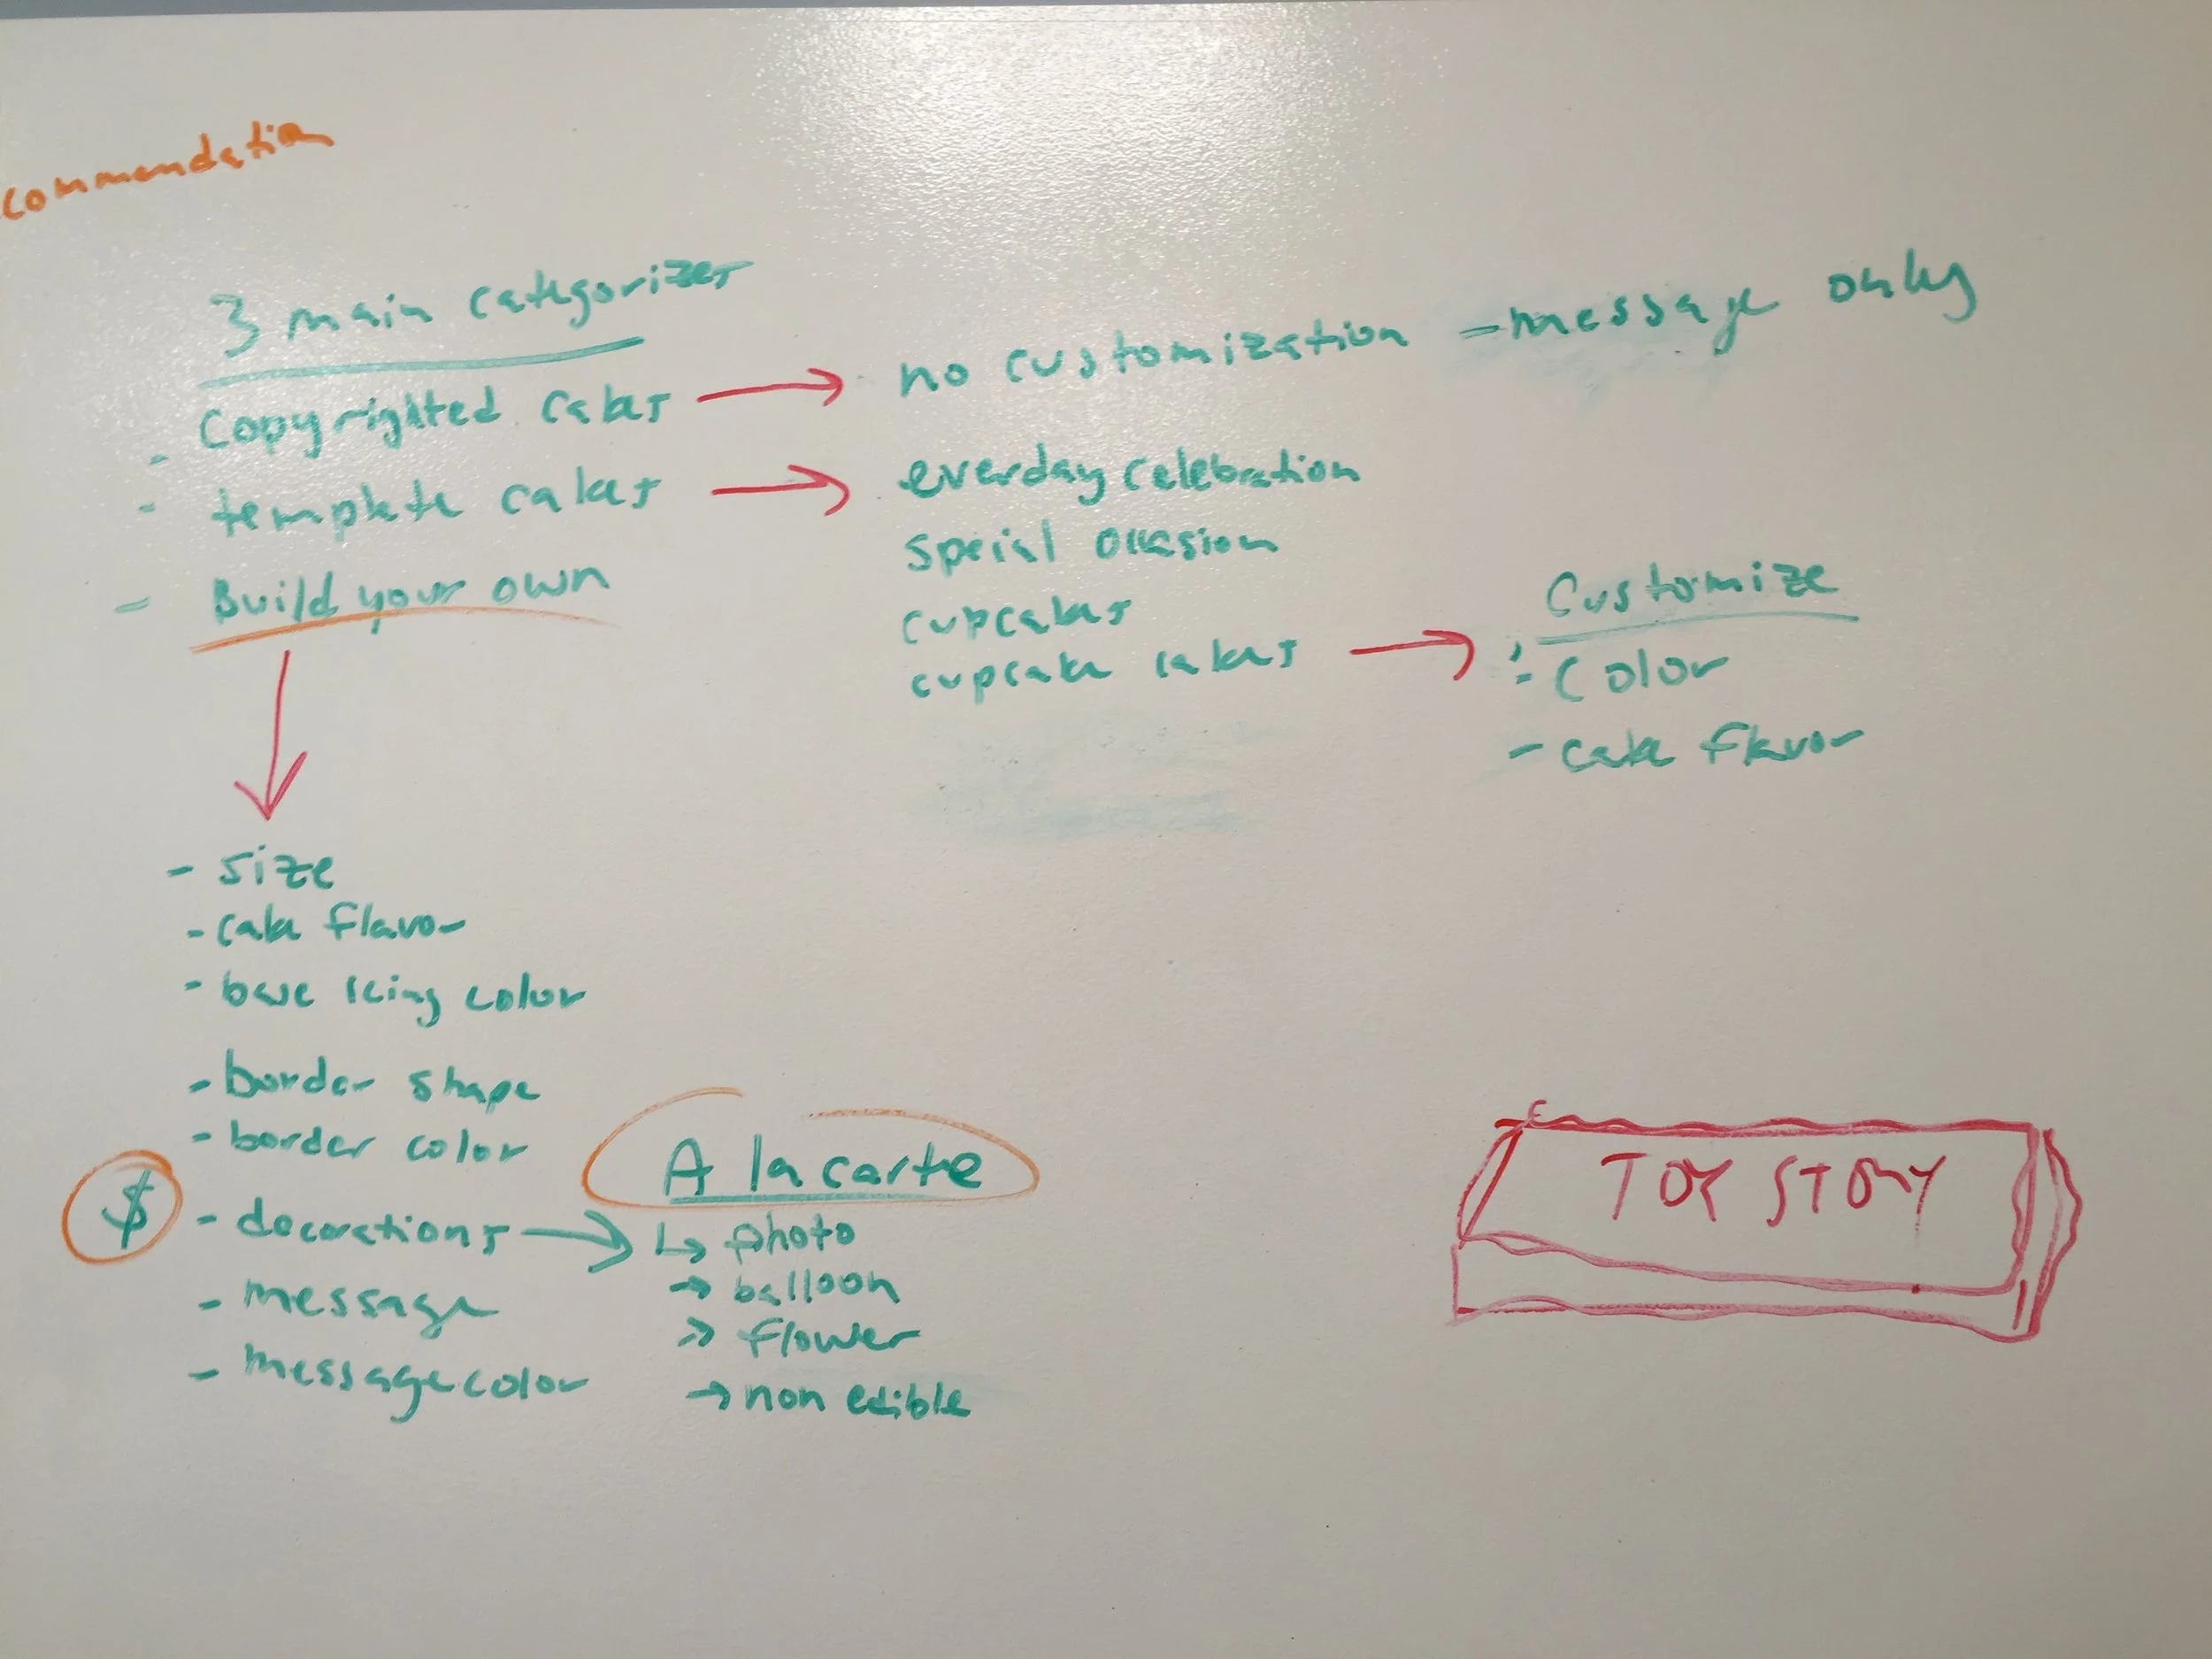 commendation
3 main categorizes
- Copyrighted cakes → no customization - message only
- template cakes → everday celebration
special occasion
- Build your own
cupcakes
cupcake cakes →
Customize
- Color
- cake flavor
- size
- cake flavor
- base icing color
- border shape
- border color
A la carte
$ - decorations → photo
→ balloon
- message
→ flower
- message color
→ non edible
TOY STORY